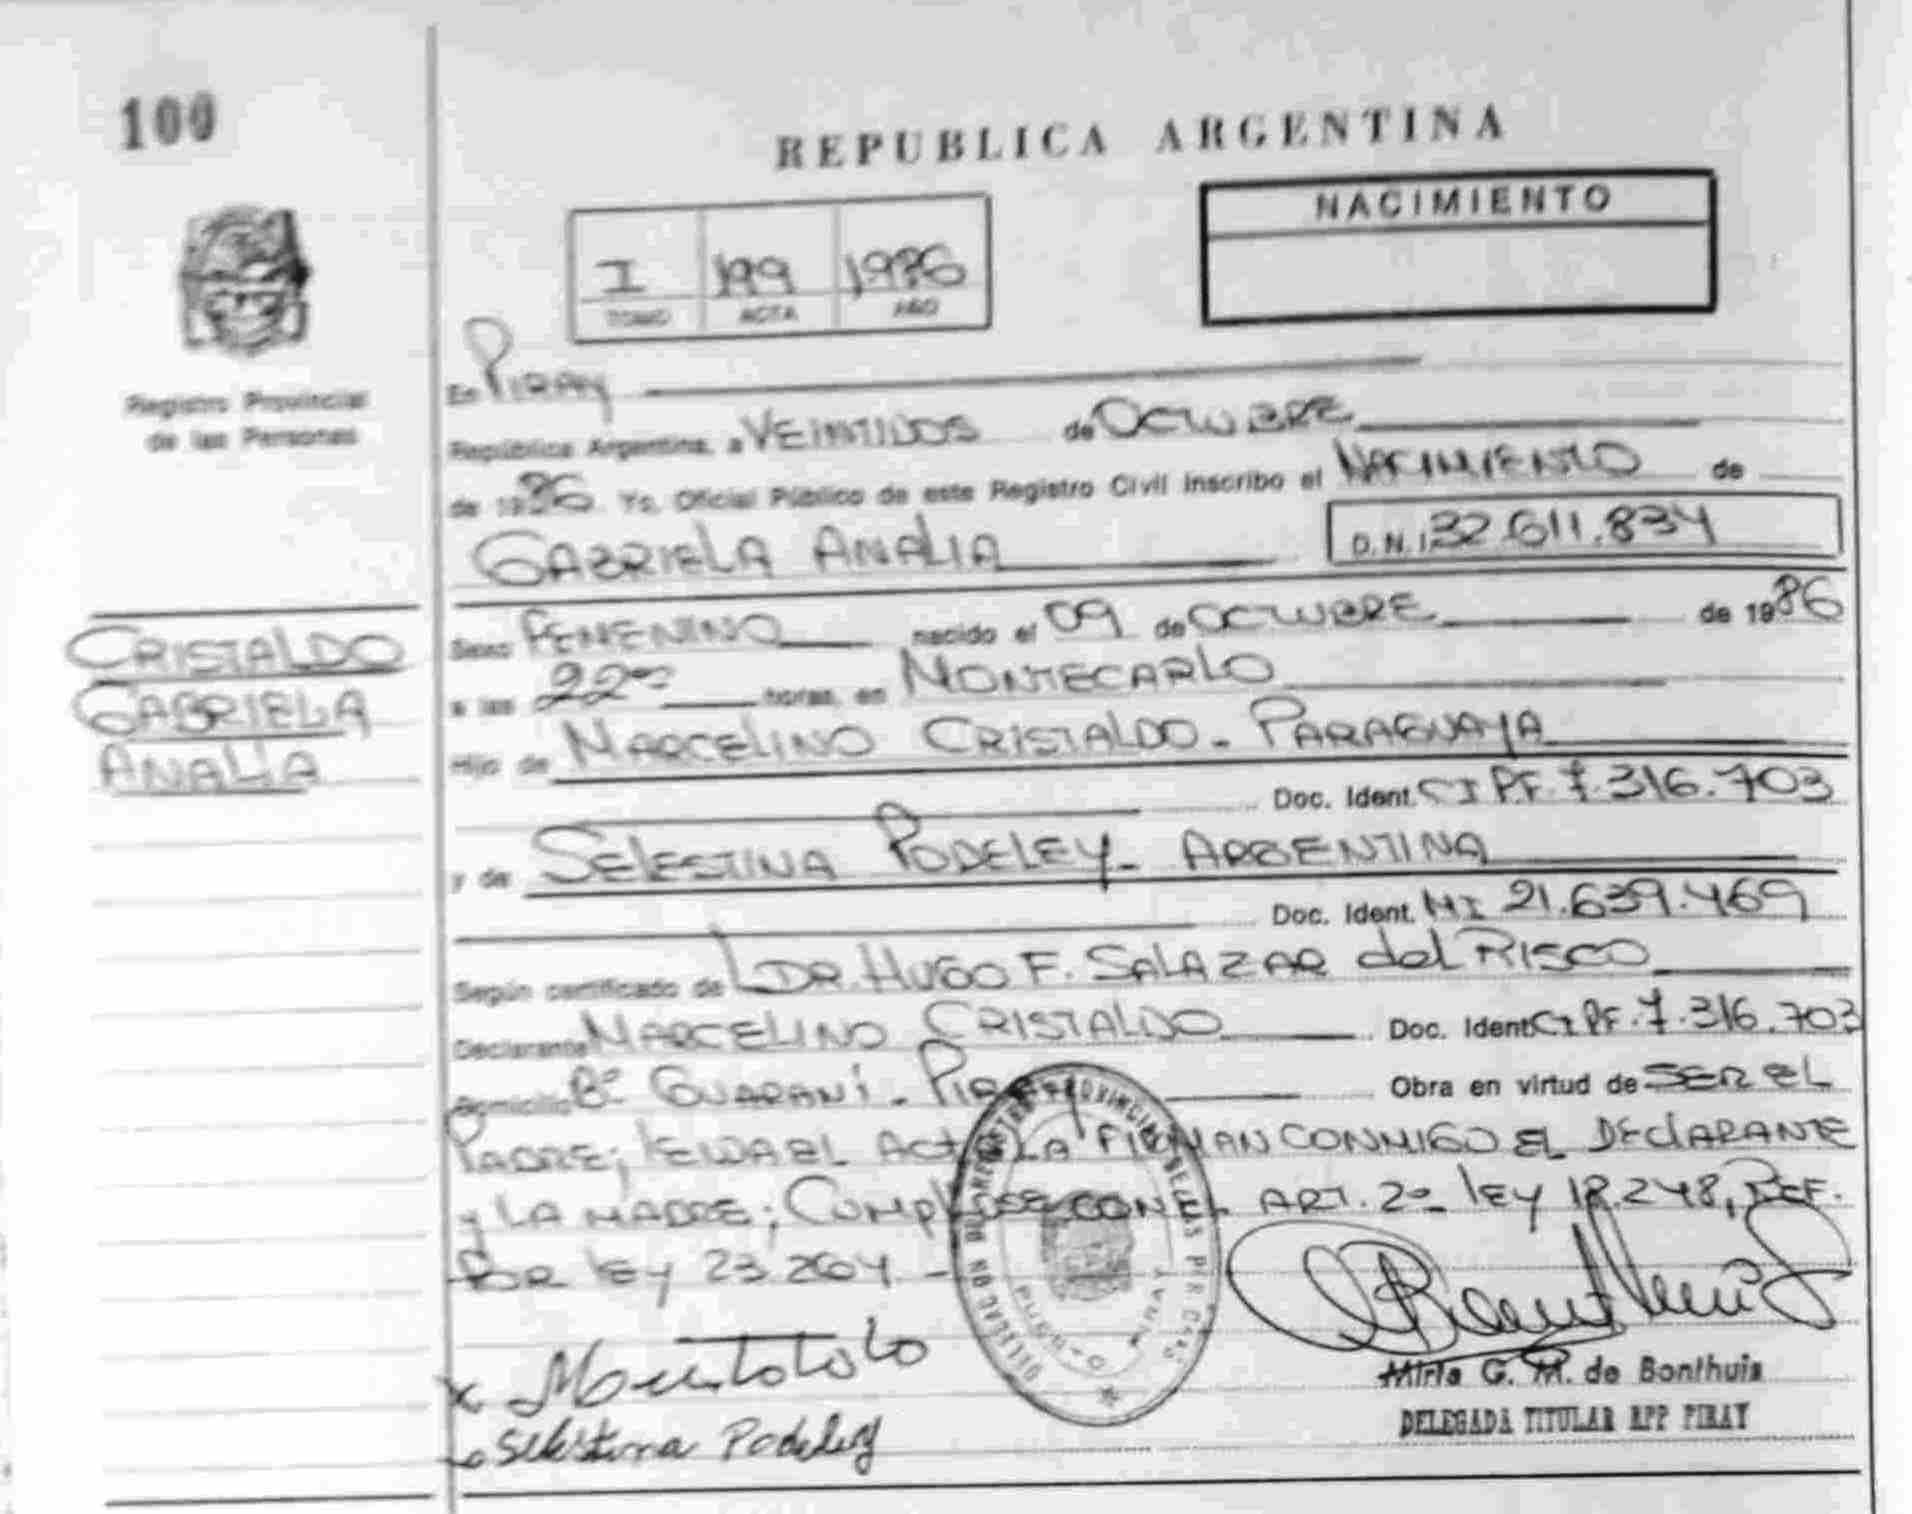 100
REPUBLICA ARGENTINA
NACIMIENTO
I 199 1986
TOMO ACTA AÑO
Registro Provincial
de las Personas
En PIRAY
República Argentina, a VEINTIDOS de OCTUBRE
de 1986 Yo, Oficial Público de este Registro Civil inscribo el NACIMIENTO de
GABRIELA ANALIA D.N.I. 32.611.834
CRISTALDO
GABRIELA
ANALIA
Sexo FEMENINO nacido el 09 de OCTUBRE de 1986
a las 22 00 horas, en MONTECARLO
Hijo de MARCELINO CRISTALDO - PARAGUAYA
Doc. Ident. CI P.F. 7.316.703
y de SELESTINA PODELEY - ARGENTINA
Doc. Ident. MI 21.639.469
Según certificado de DR. HUGO F. SALAZAR del RISCO
Declarante MARCELINO CRISTALDO Doc. Ident CI PF. 7.316.703
Domicilio Bº GUARANÍ - PIRAY Obra en virtud de SER EL
PADRE; LEIDA EL ACTA LA FIRMAN CONMIGO EL DECLARANTE
y LA MADRE; CON EL ART. 2º LEY 18.248, REF.
POR LEY 23.264 -
PUERTO PIRAY
Selestina Podeley
Mirta G. M. de Bonthuis
DELEGADA TITULAR RPP PIRAY